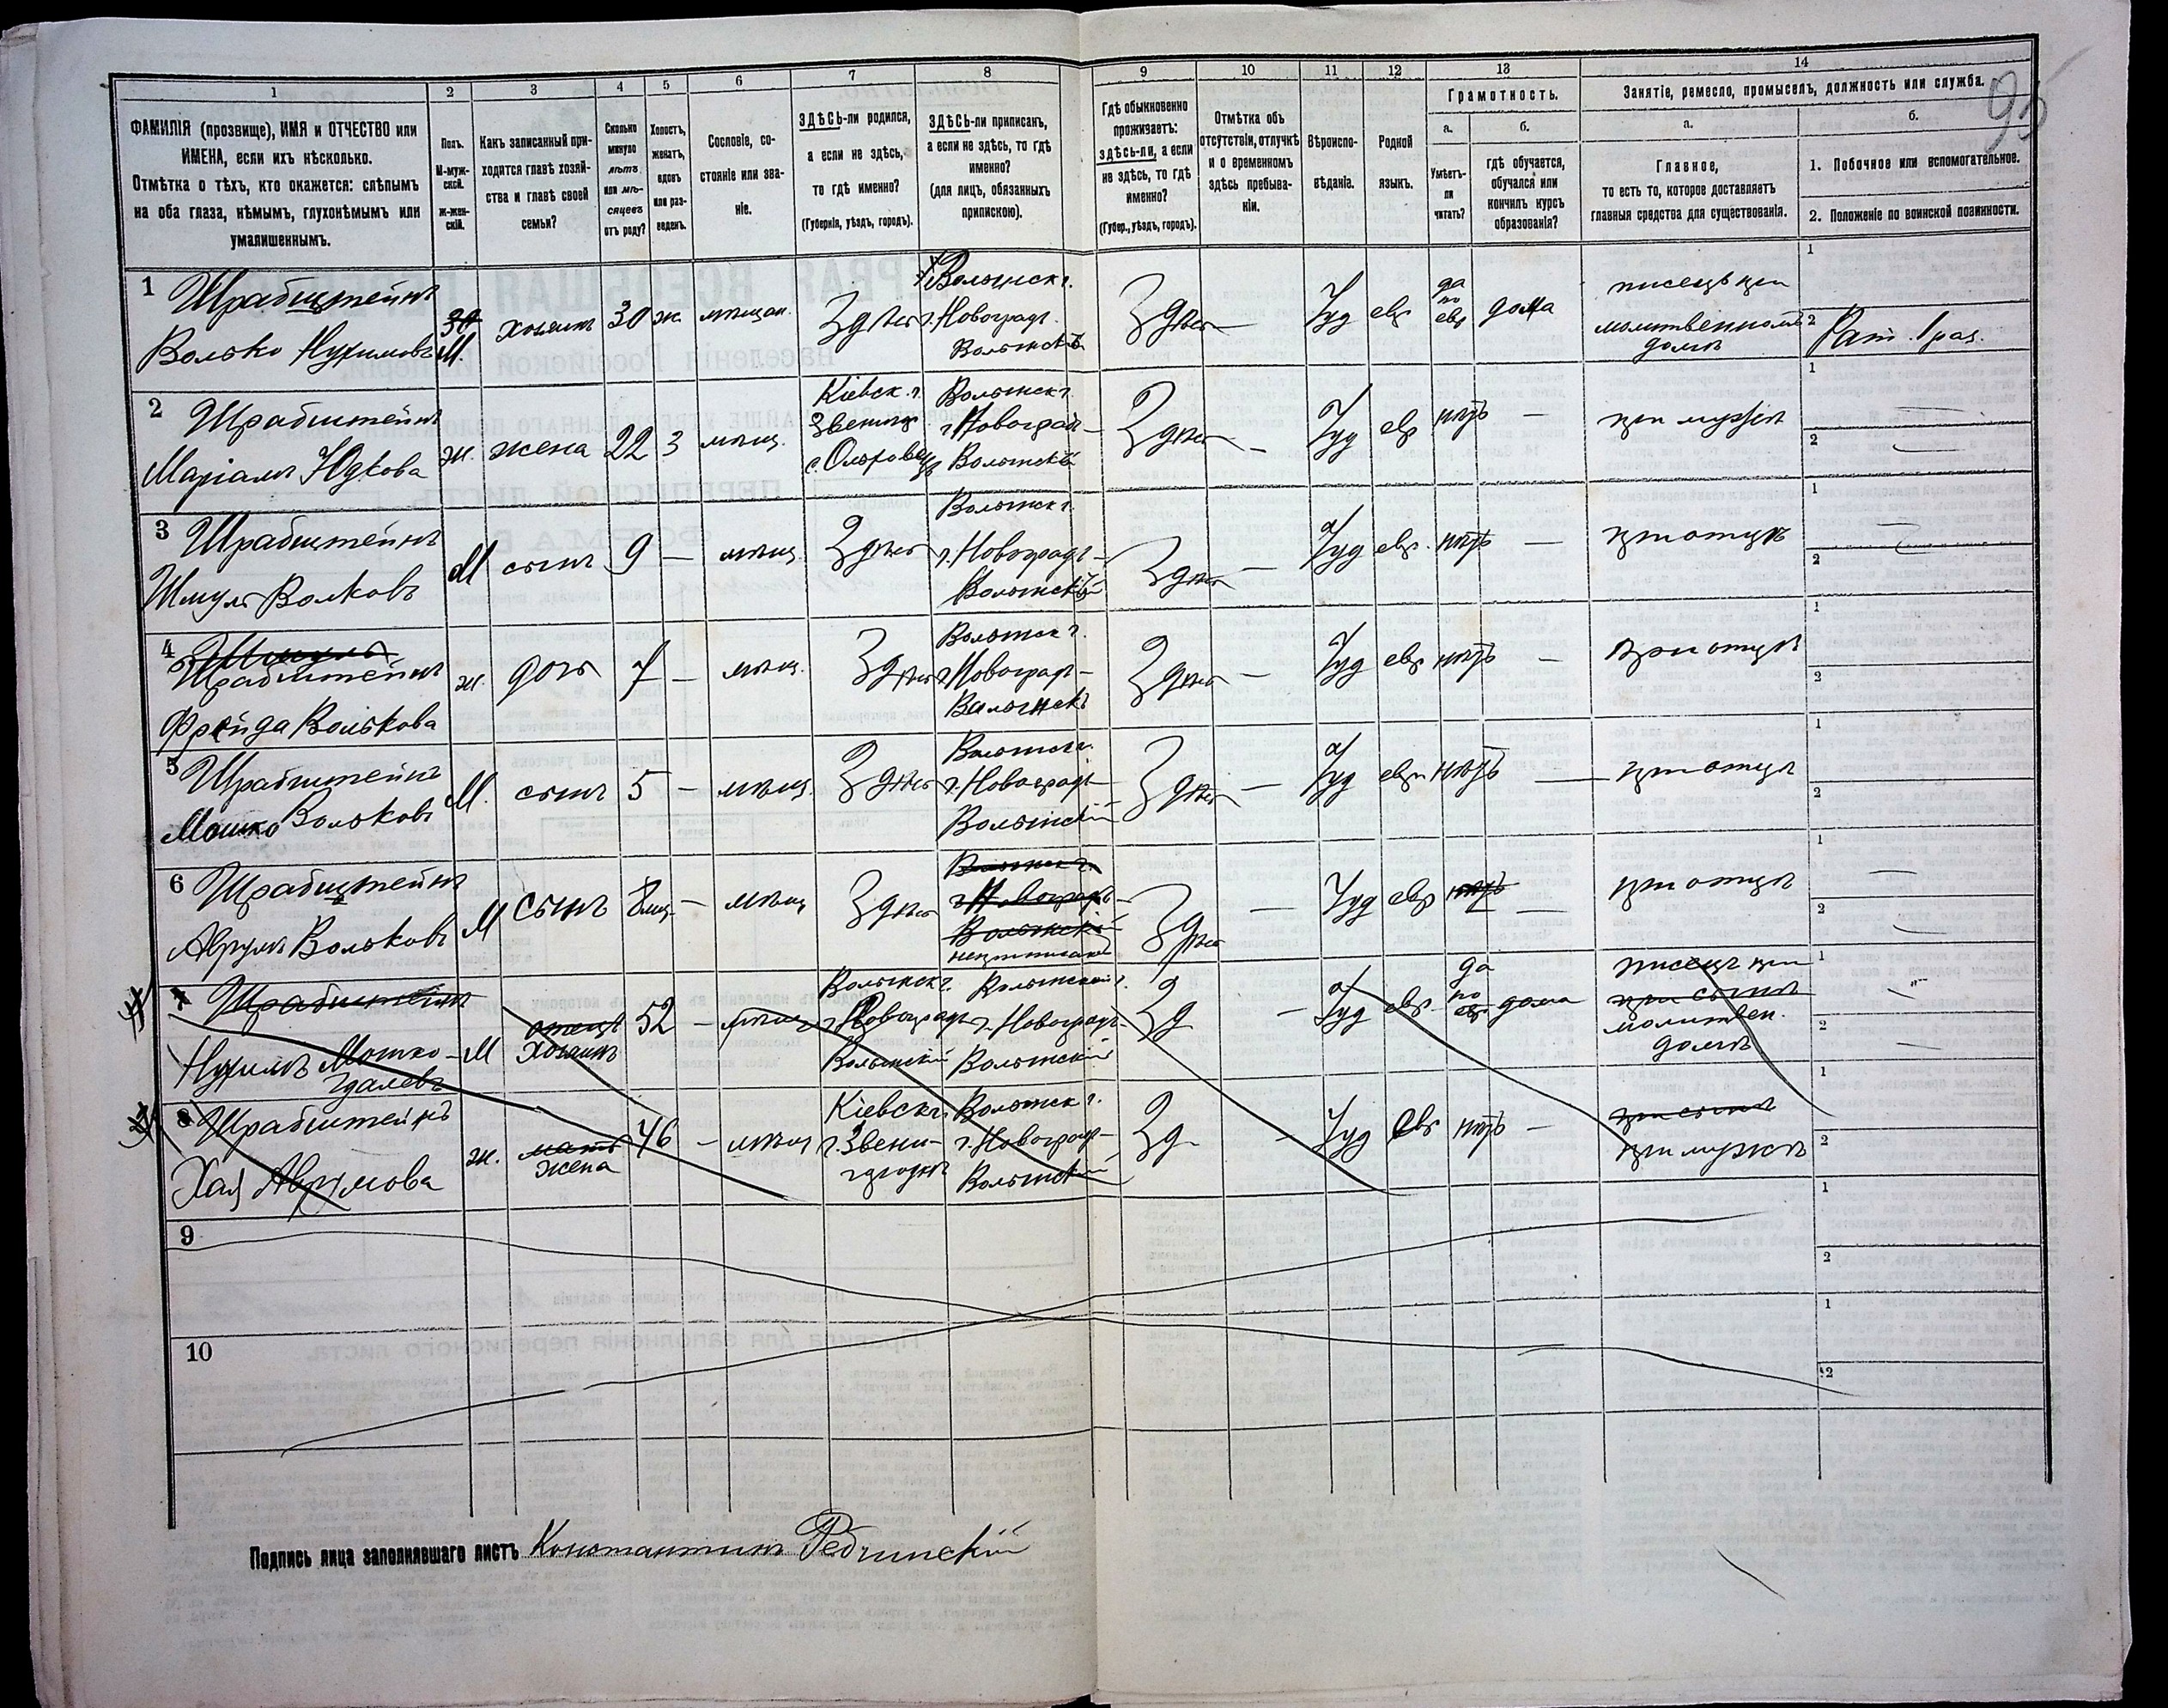 95
1 2 3 4 5 6 7 8 9 10 11 12 13 14
ФАМИЛІЯ (прозвище), ИМЯ и ОТЧЕСТВО или
ИМЕНА, если ихъ нѣсколько.
Отмѣтка о тѣхъ, кто окажется: слѣпымъ
на оба глаза, нѣмымъ, глухонѣмымъ или
умалишеннымъ.
Полъ.
М-муж-
ской.
Ж-жен-
скій.
Какъ записанный при-
ходится главѣ хозяй-
ства и главѣ своей
семьи?
Сколько
минуло
лѣтъ
или мѣ-
сяцевъ
отъ роду?
Холостъ,
женатъ,
вдовъ
или раз-
веденъ.
Сословіе, со-
стояніе или зва-
ніе.
ЗДѢСЬ-ли родился,
а если не здѣсь,
то гдѣ именно?
(Губернія, уѣздъ, городъ).
ЗДѢСЬ-ли приписанъ,
а если не здѣсь, то гдѣ
именно?
(для лицъ, обязанныхъ
припискою).
Гдѣ обыкновенно
проживаетъ:
здѣсь-ли, а если
не здѣсь, то гдѣ
именно?
(Губер., уѣздъ, городъ).
Отмѣтка объ
отсутствіи, отлучкѣ
и о временномъ
здѣсь пребыва-
ніи.
Вѣроиспо-
вѣданіе.
Родной
языкъ.
Грамотность.
а.
Умѣетъ-
ли
читать?
б.
гдѣ обучается,
обучался или
кончилъ курсъ
образованія?
Занятіе, ремесло, промыселъ, должность или служба.
а.
Главное,
то есть то, которое доставляетъ
главныя средства для существованія.
б.
1. Побочное или вспомогательное.
2. Положеніе по воинской повинности.
1 Шрабштейнъ
Волько Нухимовъ
30 М.
хозяинъ 30 ж мѣщан. Здѣсь
Волынск г.
г. Новоград.
Волынскъ
Здѣсь — Іуд евр
да
по
евр
дома
писецъ при
молитвенномъ
домѣ
1
2
2 Шрабштейнъ
Маріамъ Юдкова
ж. жена 22 З мѣщ.
Кіевск. г.
Звениг
Волынск г.
г Новоград-
Волынскъ
Здѣсь — Іуд евр нѣтъ — при мужѣ
1
2
3 Шрабштейнъ
Шмуль Волковъ
М сынъ 9 — мѣщ. Здѣсь
Волынск г.
г. Новоградъ-
Волынскій
Здѣсь — Іуд евр. нѣтъ — при отцѣ
1
2
4 Шмуль
Шрабштейнъ
Фрейда Волькова
ж. дочь 7 — мѣщ. Здѣсь
Волынск г.
г Новоградъ-
Волынскъ
Здѣсь — Іуд евр нѣтъ — при отцѣ
1
2
5 Шрабштейнъ
Мошко Вольковъ
М. сынъ 5 — мѣщ. Здѣсь
Волынск г.
г. Новоградъ-
Волынскій
Здѣсь — Іуд евр нѣтъ — при отцѣ
1
2
6 Шрабштейнъ
Аврумъ Вольковъ
М сынъ 8 мѣс. — мѣщ Здѣсь
Волынск г.
г Новоградъ-
Волынскій
неприписанъ
Здѣсь — Іуд евр нѣтъ — при отцѣ
1
2
7 Шрабштейнъ
Нухимъ Мошко-
Гдалевъ
М
отецъ
хозяинъ
52 — мѣщ
Волынск г.
г. Новоградъ
Волынскій
Волынской г.
г. Новоградъ-
Волынскій
Зд Іуд евр.
да
по
евр
дома
писецъ при
при сынѣ
молитвен.
домѣ
1
2
8 Шрабштейнъ
Хая Аврумова
ж.
мать
жена
46 — мѣщ
Кіевск г.
г. Звени-
городк
Волынск г.
г. Новоград-
Волынскій
Зд — Іуд евр нѣтъ —
при сынѣ
при мужѣ
1
2
9
1
2
10
1
2
Подпись лица заполнявшаго листъ Константинъ